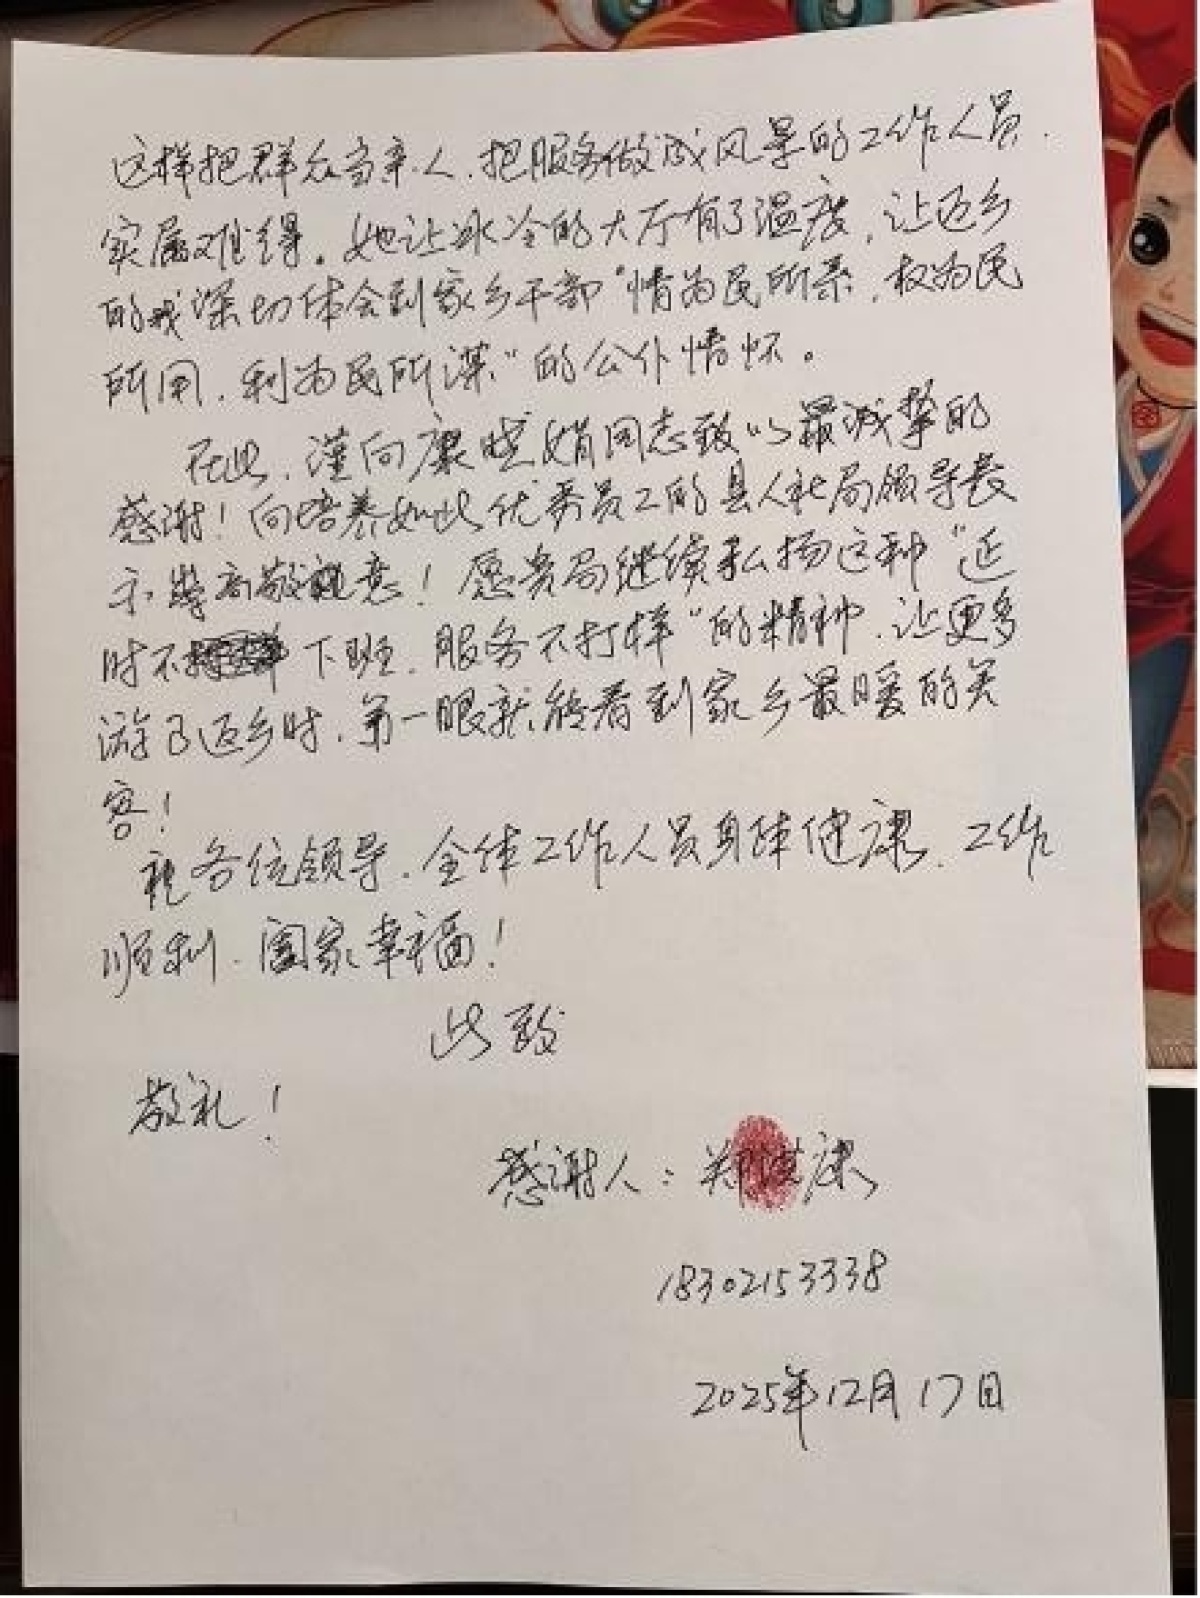 这样把群众当亲人,把服务做成风景的工作人员,
实属难得。她让冰冷的大厅有了温度,让返乡
的我深切体会到家乡干部“情为民所系,权为民
所用,利为民所谋”的公仆情怀。
在此,谨向康婷娟同志致以最诚挚的
感谢!向培养如此优秀员工的县人社局领导表
示崇高敬意!愿贵局继续弘扬这种“延
时不下班,服务不打样”的精神,让更多
游子返乡时,第一眼就能看到家乡最暖的笑
容!
祝各位领导、全体工作人员身体健康、工作
顺利、阖家幸福!
此致
敬礼!
感谢人:郑 康
18302153338
2025年12月17日